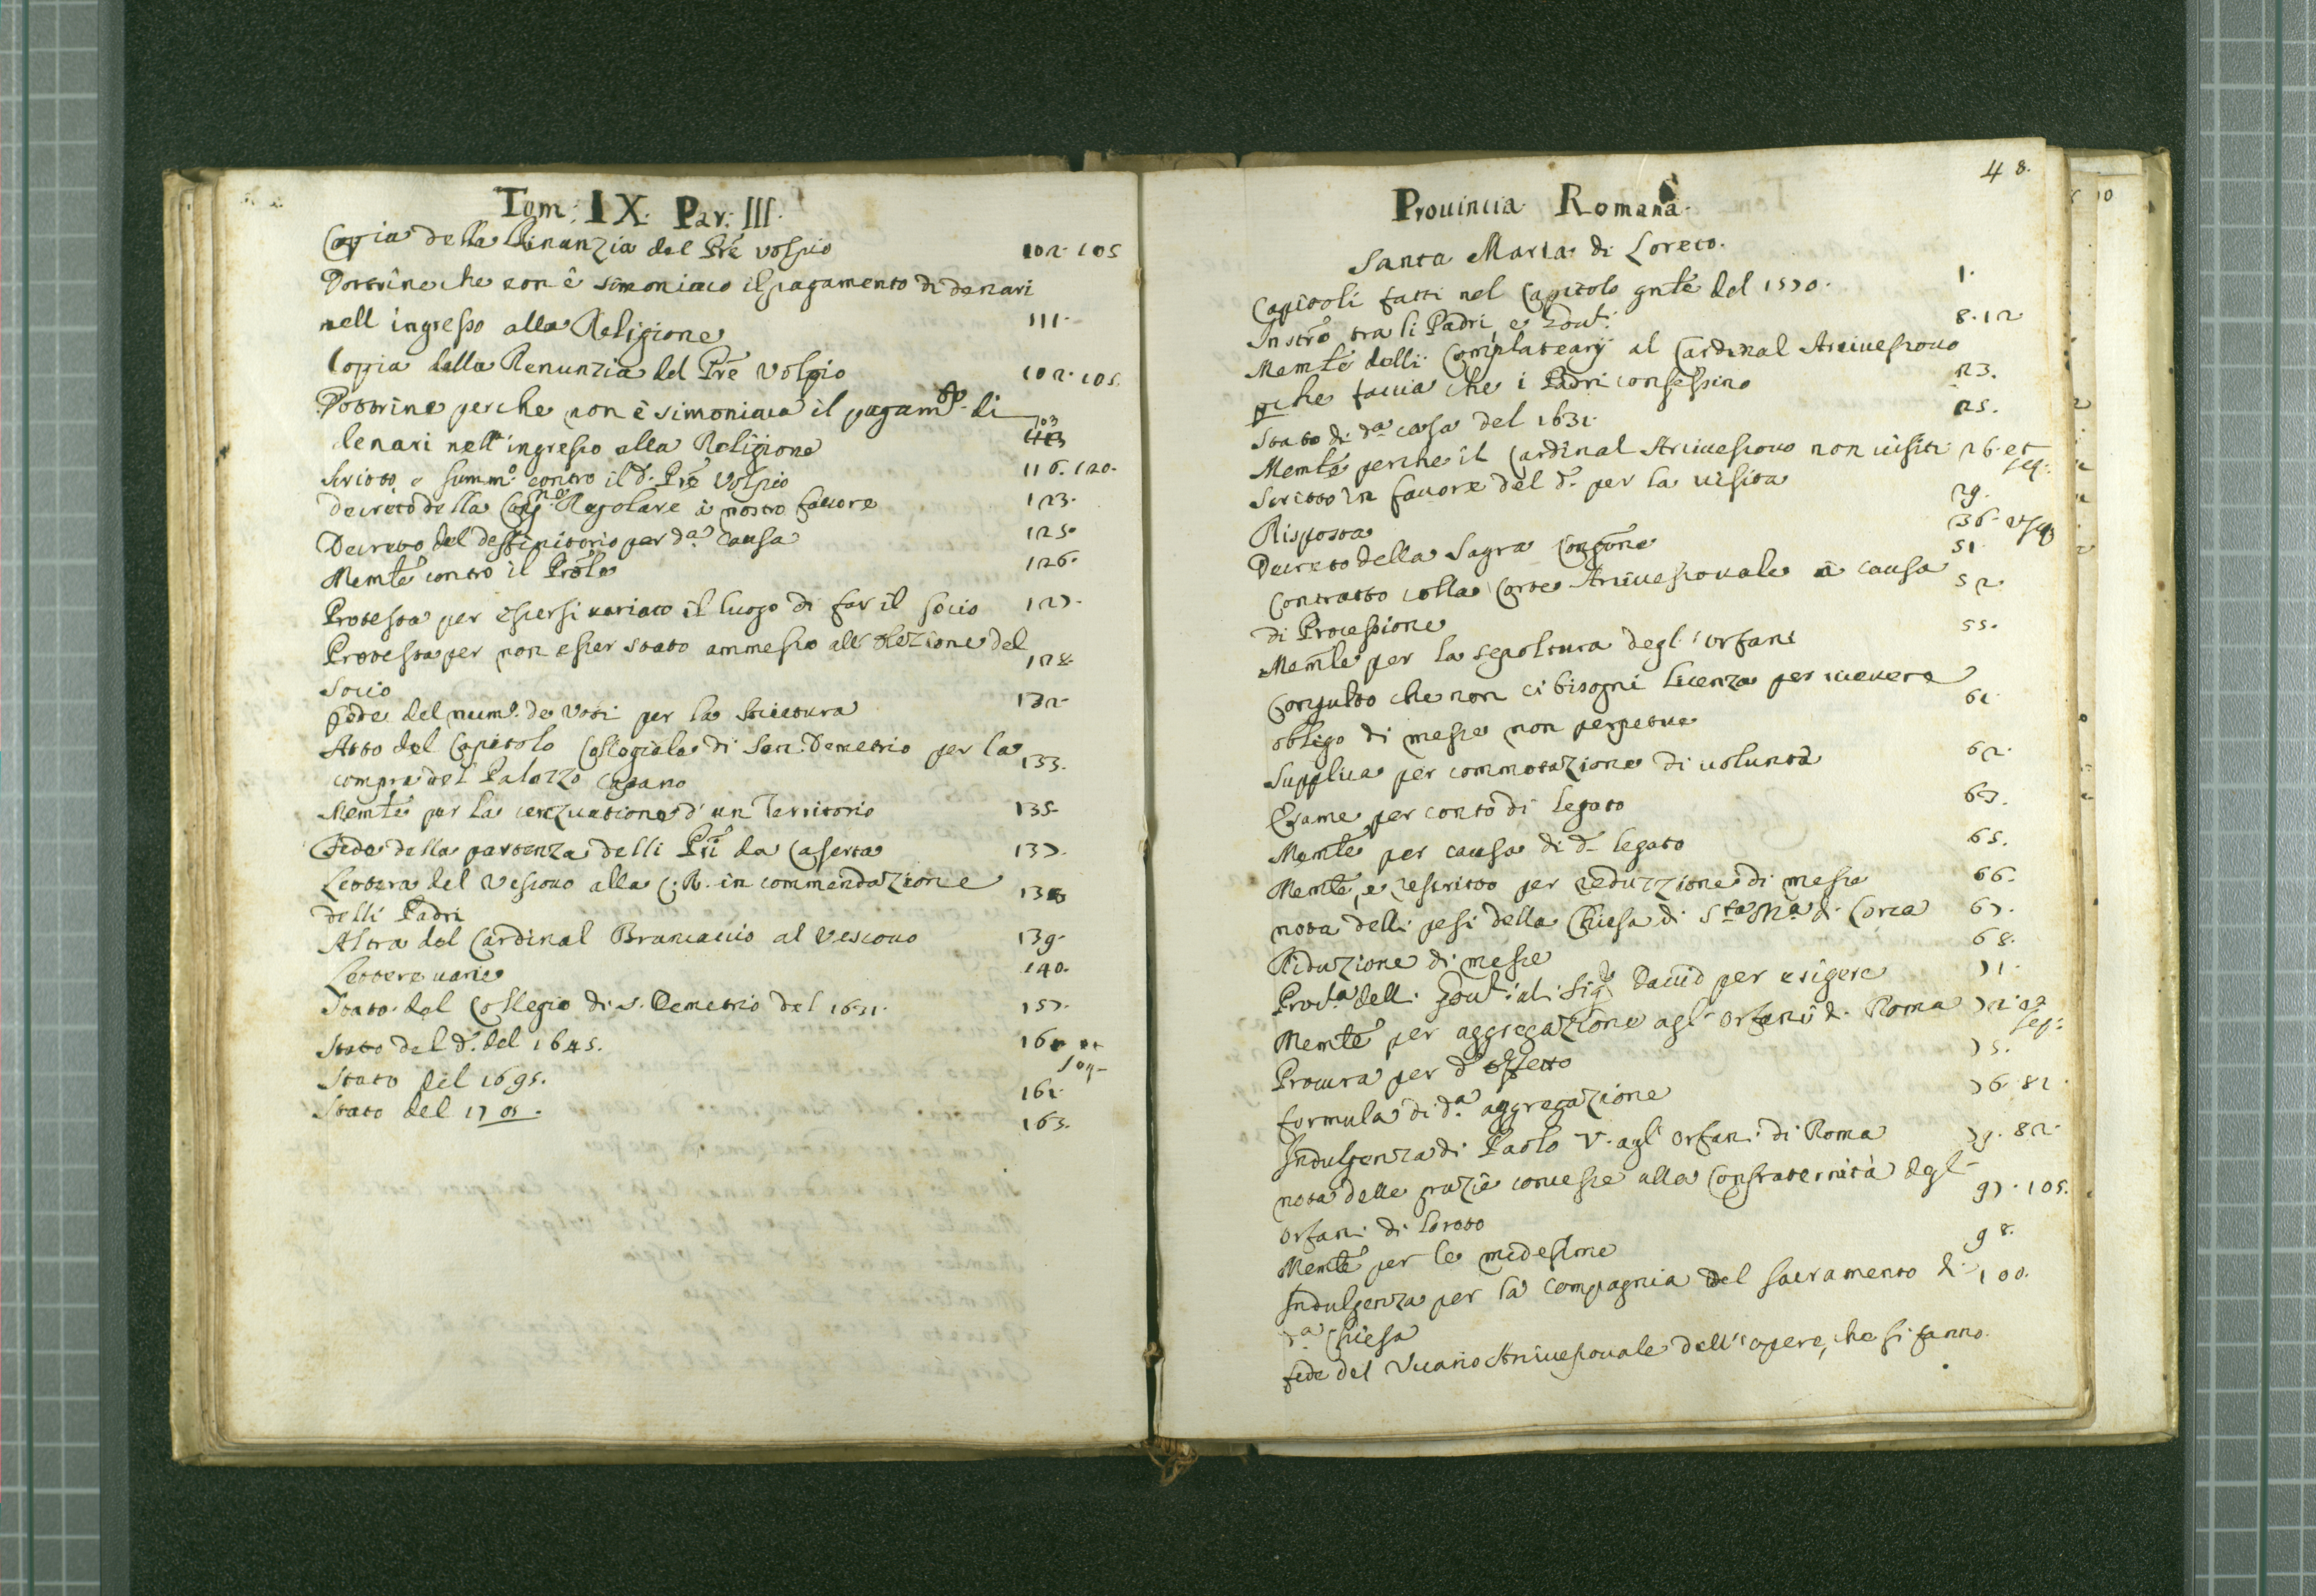 Tom: IX. Par: III.
Copia della Rinunzia del Pre Volpio 102. 105
Dottrine che non è simoniaco il pagamento di denari
nell ingresso alla Religione 111.
Coppia della Renunzia del Pre Volpio 102. 105.
Dottrine perche non è simoniaca il pagamto. di
denari nell'ingresso alla Religione 103
Scritto e summo. contro il d. Pre Volpio 116. 120.
Decreto della Congne. Regolare à nostro favore 123.
Decreto del deffinitorio per da. causa 125.
Memle contro il 126.
Protesta per essersi variato il luogo di far il socio 127.
Protesta per non esser stato ammesso all'elezione del
socio 128.
Fede del num. de voti per la 132.
Atto del Capitolo Collegiale di San Demetrio per la
compra del Palazzo 133.
Memle per la cenzuatione d'un Territorio 135.
Fede della partenza delli Pri da Caserta 137.
Lettera del Vescouo alla C: R. in commendazione
delli Padri 138
Altra del Cardinal Brancaccio al Vescouo 139.
Lettere uarie 140.
Stato del Collegio di S. Demetrio del 1631. 157.
Stato del d. del 1645. 160 et seq.
Stato del 1695. 161.
Stato del 1705. 163.
48.
Prouincia Romana.
Santa Maria di Loreto.
Capitoli fatti nel Capitolo gnle del 1570. 1.
Instro tra li Padri, e Gout: 8. 12
Memle delli Complatearij al Cardinal Arciuescouo
pche faccia che i Padri confessino 23.
Stato di da casa del 1631. 25.
Memle perche il Cardinal Arciuescouo non uisiti 26. et seq:
Scritto in fauore del d. per la uisita 29.
Risposta 36. et seq
Decreto della Sagra Congne 51
Contratto colla Corte Arciuescouale à causa
di Processione 52
Memle per la sepoltura degl'orfani 55.
Consulto che non ci bisogni licenza per riceuere
obligo di messe non perpetue 61
Supplica per commotazione di uolunta 62.
Esame per conto di legato 63.
Memle per causa di d. legato 65.
Memle, e rescritto per reduzzione di messe 66.
nota delli pesi della Chiesa di Sta Ma. di Loreto 67.
Riduzione di messe 68.
Procra delli Gout: al Sigr Dauid per esigere 71.
Memle per aggregazione agl'orfani di Roma 72. et seq:
Procura per d. effetto 75.
formula di da. aggregazione 76. 81.
Indulgenza di Paolo V. agl'orfani di Roma 79. 82.
nota delle grazie concesse alla Confraternità degl'
orfani di Loreto 97. 105.
Memle per le medesime 98.
Indulgenza per la compagnia del sacramento di
da. Chiesa 100.
fede del Vicario Arciuescouale dell'opere, che si fanno.